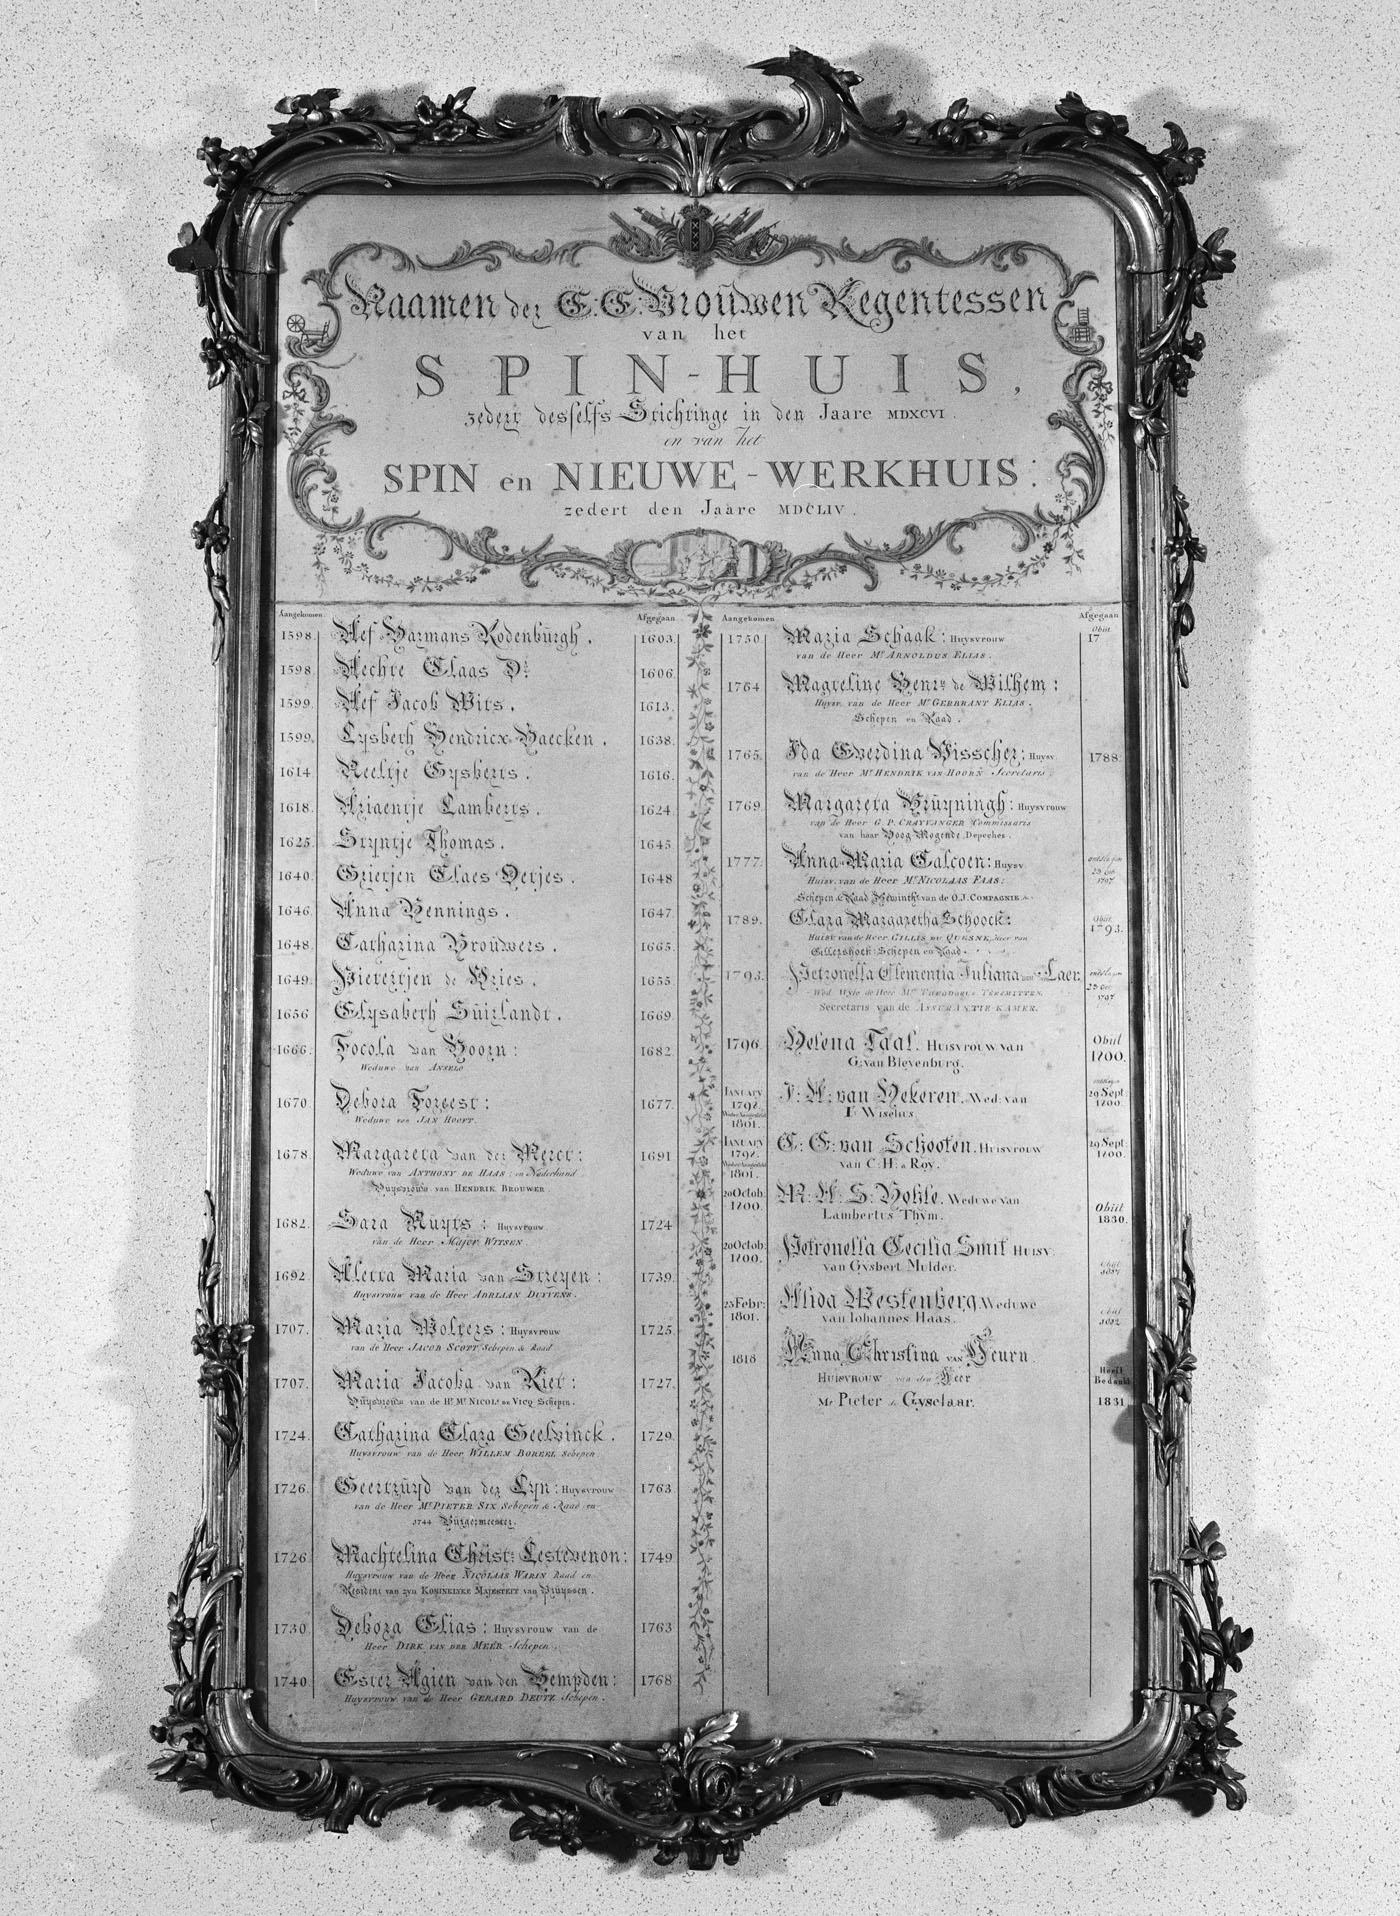 Naamen der E: E: Vrouwen Regentessen
van het
SPIN-HUIS,
zedert desselfs Stichtinge in den Jaare MDXCVI.
en van het
SPIN en NIEUWE-WERKHUIS:
zedert den Jaare MDCLIV.
Aangekomen Afgegaan
1598. Aef Harmans Rodenburgh. 1603.
1598. Aechte Claas Dr. 1606.
1599. Aef Jacob Wits. 1613.
1599. Lysbeth Hendricx Baecken. 1638.
1614. Neeltje Gysberts. 1616.
1618. Ariaentje Lamberts. 1624.
1625. Stryntje Thomas. 1645
1640. Grietjen Claes Oetjes. 1648
1646. Anna Hennings. 1647.
1648. Catharina Brouwers. 1665.
1649. Pietertjen de Vries. 1655
1656 Elysabeth Suirlandt. 1669.
1666. Focola van Hoorn: 1682.
Weduwe van ANSELO
1670 Debora Foreest: 1677.
Weduwe van JAN HOOFT.
1678. Margareta van der Merct: 1691
Weduwe van ANTHONY DE HAAS: en Naderhand
Huysvrouw van HENDRIK BROUWER
1682. Sara Nuyts: Huysvrouw 1724
van de Heer Major WITSEN.
1692. Aletta Maria van Streyen: 1739.
Huysvrouw van de Heer ADRIAAN DUYVENS.
1707. Maria Wolters: Huysvrouw 1725.
van de Heer JACOB SCOTT Schepen & Raad
1707. Maria Jacoba van Riet: 1727.
Huysvrouw van de Hr. Mr. NICOLs. DE VICQ Schepen.
1724. Catharina Clara Geelvinck. 1729.
Huysvrouw van de Heer WILLEM BOREEL Schepen
1726. Geertruyd van der Lyn: Huysvrouw 1763
van de Heer Mr. PIETER SIX Schepen & Raad en
1744 Burgermeester.
1726. Machtelina Christ: Lestevenon: 1749
Huysvrouw van de Heer NICOLAAS WARIN Raad en
Resident van zyn KONINKLYKE MAJESTEIT van Pruyssen.
1730. Debora Elias: Huysvrouw van de 1763
Heer DIRK VAN DER MEER Schepen.
1740. Ester Agien van den Hempden: 1768
Huysvrouw van de Heer GERARD DEUTZ Schepen.
Aangekomen Afgegaan
1750. Maria Schaak: Huysvrouw Obiit 17
van de Heer Mr. ARNOLDUS ELIAS.
1764 Magteline Henr. de Wilhem:
Huysv. van de Heer Mr. GERBRANT ELIAS.
Schepen en Raad.
1765. Ida Everdina Visscher: Huysv 1788.
van de Heer Mr. HENDRIK VAN HOORN Secretaris
1769. Margareta Bruyningh: Huysvrouw
van de Heer G. P. CRAYVANGER Commissaris
van haar Hoog Mogende Depeches.
1777. Anna Maria Calcoen: Huysv ontslagen
Huisv. van de Heer Mr. NICOLAAS FAAS: 1797
Schepen & Raad Bewinth. van de O.I. COMPAGNIE
1789. Clara Margaretha Schoock: Obiit 1793.
Huisv van de Heer GILLIS DU QUESNE, Heer van
Gillershoek: Schepen en Raad.
1793. Petronella Clementia Juliana van Laer. ontslagen
Wed. Wyle de Heer Mr. THEODORUS TERSMITTEN. 1797
Secretaris van de ASSURANTIE-KAMER.
1796. Helena Taal. HUISVROUW van Obiit
G: van Bleyenburg. 1800.
JANUARY 1798. J: A: van Hekeren. Wed: van ontslagen 29 Sept. 1800.
1801. Is. Wiselius.
JANUARY 1798. C: G: van Schooten. HUISVROUW 29 Sept. 1800.
1801. van C: H: a Roy.
20 Octob: 1800. M: A: S: Hohle. Weduwe van Obiit
Lambertus Thym. 1830.
20 Octob: 1800. Petronella Cecilia Smit HUISV.
van Gysbert Mulder.
25 Febr: 1801. Alida Westenberg. Weduwe
van Iohannes Haas.
1818 Anna Christina VAN Veurn
HUISVROUW van den Heer Heeft Bedankt
Mr Pieter de Gyselaar. 1831